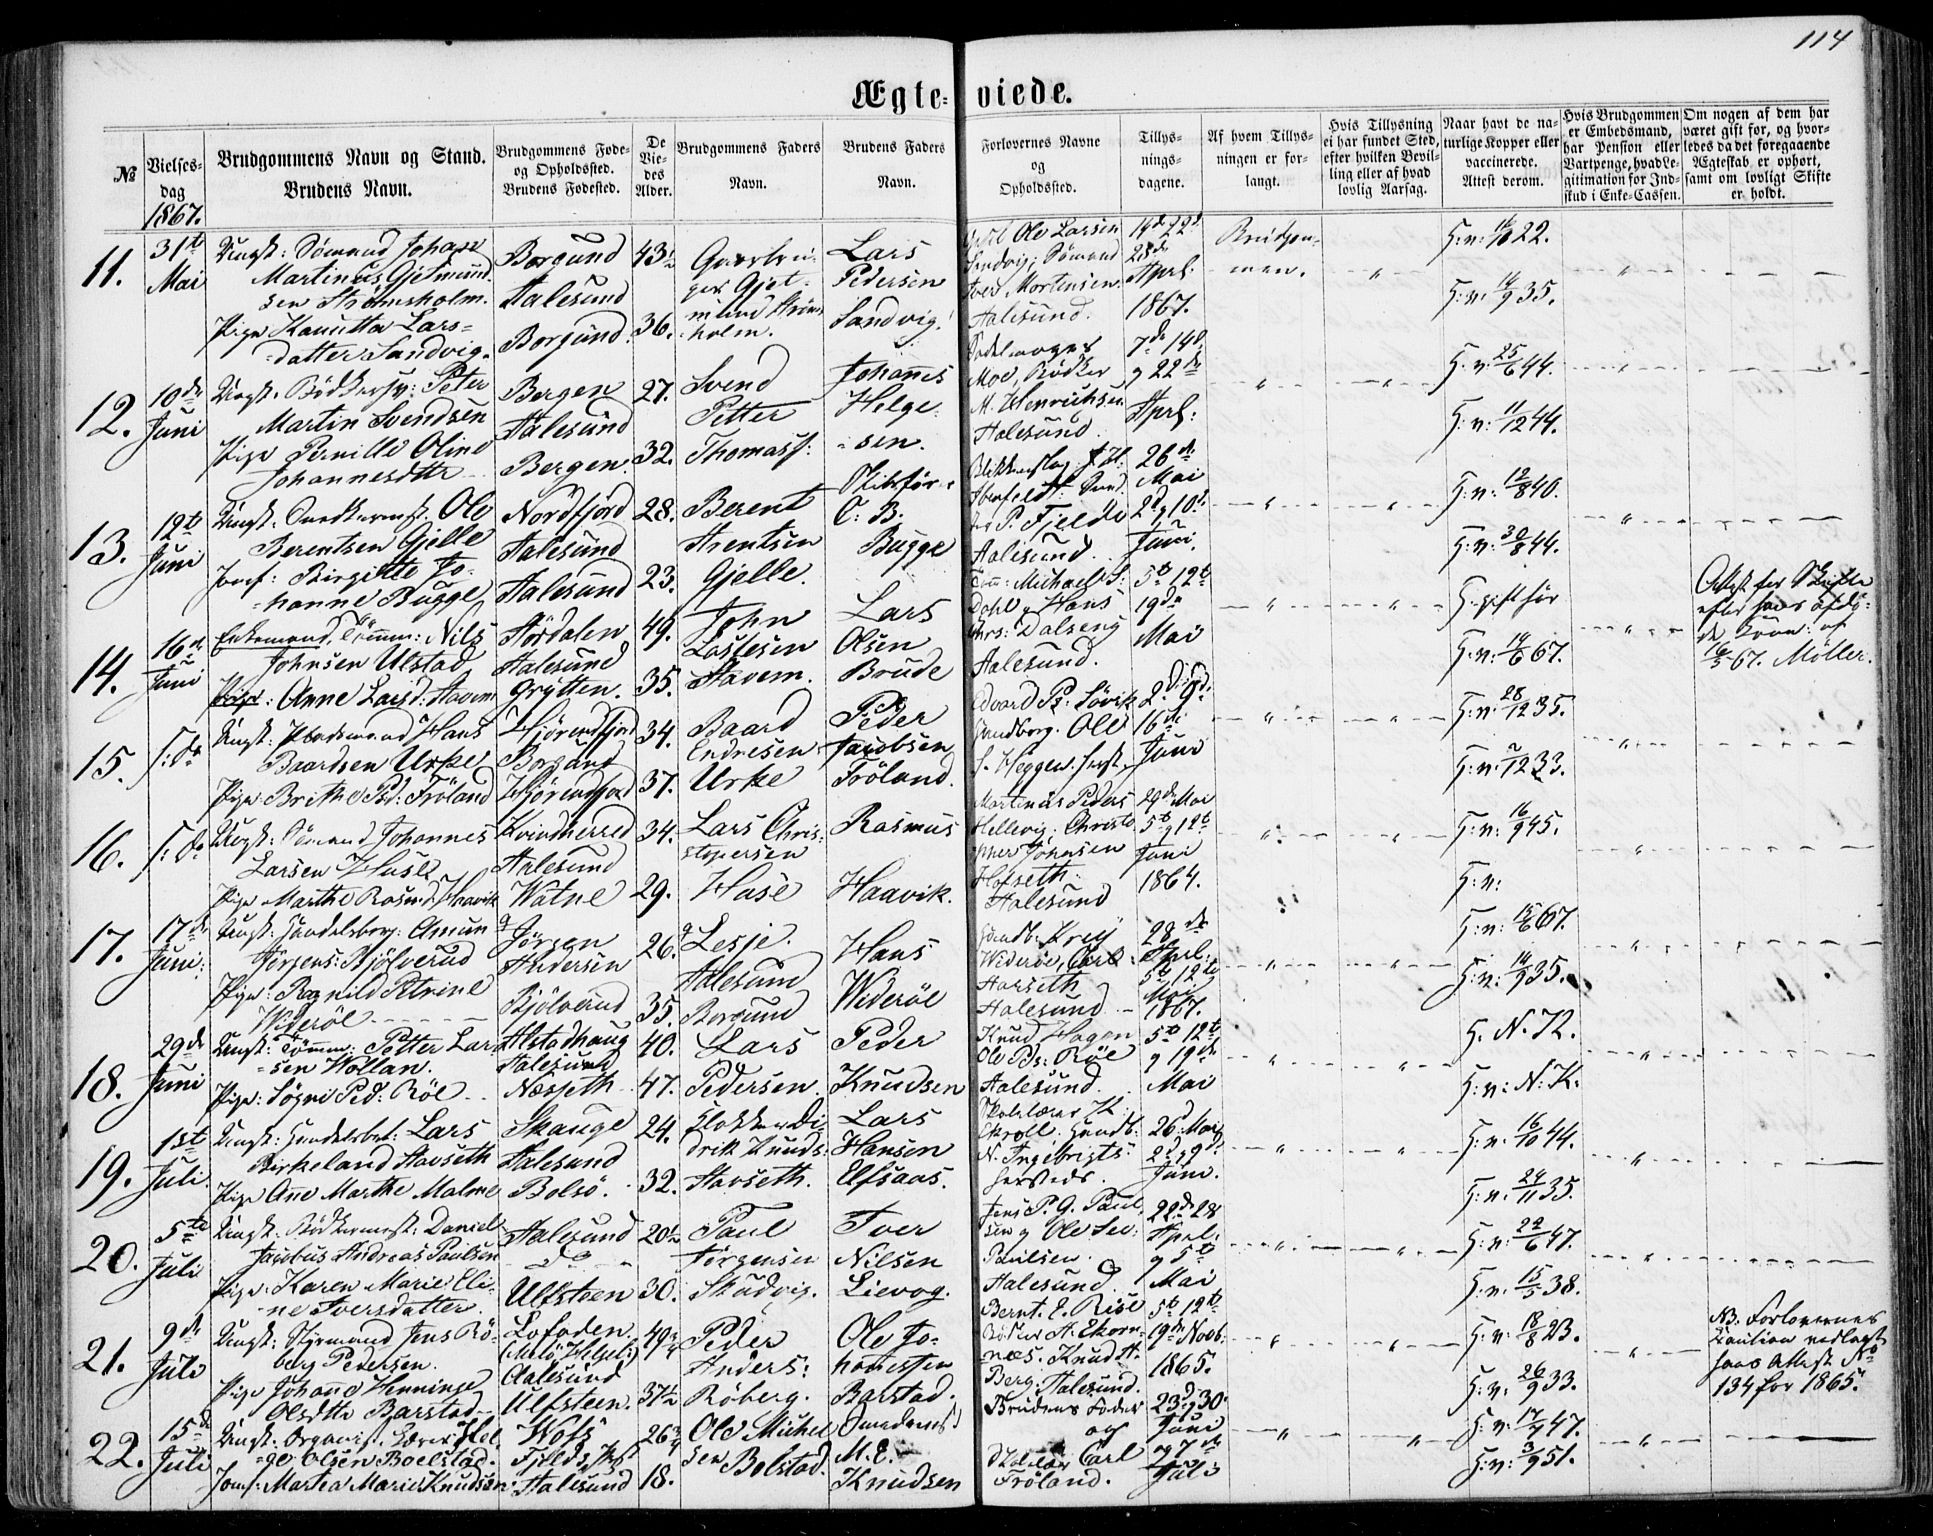 114
Ægte- viede.
№
Vielses-
dag
1867.
Brudgommens Navn og Stand.
Brudens Navn.
Brudgommens Føde-
og Opholdssted.
Brudens Fødested.
De
Vie-
des
Alder.
Brudgommens Faders
Navn.
Brudens Faders
Navn.
Forlovernes Navne
og
Opholdssted.
Tillys-
nings-
dagene.
Af hvem Tillys-
ningen er for-
langt.
Hvis Tillysning
ei har fundet Sted,
efter hvilken Bevil-
ling eller af hvad
lovlig Aarsag.
Naar havt de na-
turlige Kopper eller
vaccinerede.
Attest derom.
Hvis Brudgommen
er Embedsmand,
har Pension eller
Vartpenge, hvad Le-
gitimation for Ind-
skud i Enke-Cassen.
Om nogen af dem har
været gift før, og hvor-
ledes da det foregaaende
Ægteskab er ophørt,
samt om lovligt Skifte
er holdt.
11.
31te
Mai
Ungk: Sømand Johan
Martinus Gjetmund-
sen Strømsholm.
Pige Kanutta Lars-
datter Sandvig.
Borgund
Aalesund
Borgund.
43½
36.
Gjet-
mund Strøms-
holm.
Lars
Pedersen
Sandvig.
Ole Larsen
Sandvig, Sømand
Iver Mortensen
Aalesund.
14d 22d
28de
Aprl.
1867.
Brudgom-
men.
G: v: 16/10 22.
G: v: 14/9 35.
12.
10de
Juni
Ungk. Bødkersv: Peter
Martin Svendsen
Pige Pernille Oline
Johannesdtr
Bergen
Aalesund
Bergen.
27.
32.
Svend
Petter
Thomass:
Johannes
Helge-
sen.
Moe, Bødker
M. Henrichsen
Aalesund.
7de 14d
g 22de
Aprl:
G: v: 25/6 44.
G: v: 11/12 44.
13.
12te
Juni
Ungk: Snedkermst: Ole
Berentsen Gjelle
Jomf: Birgitte Jo-
hanne Bugge
Nordfjord
Aalesund
Aalesund
28.
23.
Berent
Arentsen
Gjelle.
C. B.
Bugge
P. Fjelde
Aalesund.
26de
Mai
2d g 10de
Juni.
G: v: 12/8 40.
G: v: 30/8 44.
14.
16de
Juni
Enkemand, Tømm: Nils
Johnsen Ulstad
Pige: Anne Larsd: Stavem
Aalesund
Grytten.
49.
35.
John
Lostesen
Stavem.
Lars
Olsen
Brude
Tøm: Michael S:
Dahl g Hans
Chrs: Dalseng
Aalesund.
5te 12te
19de
Mai
G. gift før
G: v: 14/6 67.
Attest for Skifte
efter hans afdø-
de Kone: af
16/5 67. Møller.
15.
s: D:
Ungk: Arbeidsmand Hans
Baardsen Urke
Pige Brithe Psd: Frøland
Hjørendfjord
Borgund
Hjørendfjord
34.
37.
Baard
Endresen
Urke
Peder
Jacobsen
Frøland.
Edvard Ps: Løvik
Handborg. Ole
2. 9d
16de
Juni
G: v: 28/12 35.
G: v: 2/12 33.
16.
s: D:
Ungk: Sømand Johannes
Larsen Huse
Pige Marthe Rasmd: Haavik
Kvindherred
Aalesund
Watne
34.
29.
Lars Chris-
stopersen
Huse
Rasmus
Haavik.
Martinus Peders
Hellevig, Christo-
pher Johnsen
Hofseth
Aalesund
29de Mai
5te g 12te
Juni
1864.
G: v: 16/9 45.
G: v:
17.
17de
Juni.
Ungk: Handelsborg: Amun
Jørgens: Bjølverud
Pige: Ragnild Petrine
Widerøe
Jørgen
Andersen
Bjølverud
26.
35.
Lesje.
Aalesund
Borgund
Hans
Widerøe
Handb: Krey
Widerøe, Carl
Aarseth
Aalesund
28de
Aprl:
5te 12te
Mai
1867.
G: v: 15/6 67.
G: v: 14/9 35.
18.
29de
Juni
Ungk: Tømm: Petter Lar-
sen Wollan.
Pige: Søgni Ped: Røe
Alstadhaug
Aalesund
Næsseth
40.
47.
Lars
Pedersen
Peder
Knudsen
Knud Hagen
Ole Ps: Røe
Aalesund.
5te 12te
g 19de
Mai
G. N. K.
G: v: N: K.
19.
1ste
Juli.
Ungk: Handelsbet: Lars
Birkeland Stavseth
Pige Ane Marthe Malme
Skauge
Aalesund
Bolsø.
24.
32.
Klokker Di-
drik Knuds:
Stavseth.
Lars
Hansen
Elfsaas.
Skolelærer K
Ekroll, Handb:
N. Ingebrigts:
26d Mai
2d g 9d
Juni.
G: v. 16/10 44.
G: v. 24/11 35.
20.
5te
Juli
Ungk. Bødkermst: Daniel
Jacobus Andreas Paulsen
Pige: Karen Marie Eli-
ne Iversdatter.
Aalesund
Do
Ulfsteen
20½
30.
Paul
Jørgensen
Skudvig.
Iver
Nilsen
Lievog.
Jens P. G. Paul-
sen g Ole Se:
Paulsen.
Aalesund
22de 28
Aprl.
g 5te
Mai
G: v: 22/6 47.
G: v: 15/5 38.
21.
9de
Juli
Ungk: Styrmand Jens Rø-
berg Pedersen.
Pige Johanne Henninge
Olsdtr Barstad
Lofoden.
Aalesund
Ulfsteen.
49¾
37½
Peder
Anders:
Røberg.
Ole Jo-
hanessen
Barstad.
Bernt. E. Riise
Bødker A. Ekorn-
næs. Knud A.
Berg, Aalesund.
5te 12te
19de Novb:
1865.
G: v: 18/8 23.
G: v. 26/9 33.
NB. Forlovernes
Caution vedlagt
hans Attest No
134 for 1865.
22.
15de
Juli
Ungk: Organist, Lærer Hel-
ge Olsen Boelstad.
Jomf: Martea Marie Knudsen
Aalesund
26¾
18.
Ole Michel-
sen Bolstad.
M. E.
Knudsen
Brudens Fader
og
Carl
Frøland.
23d g 30
Juni
og 7de
Juli
G: v: 17/4 47.
G: v: 3/9 51.